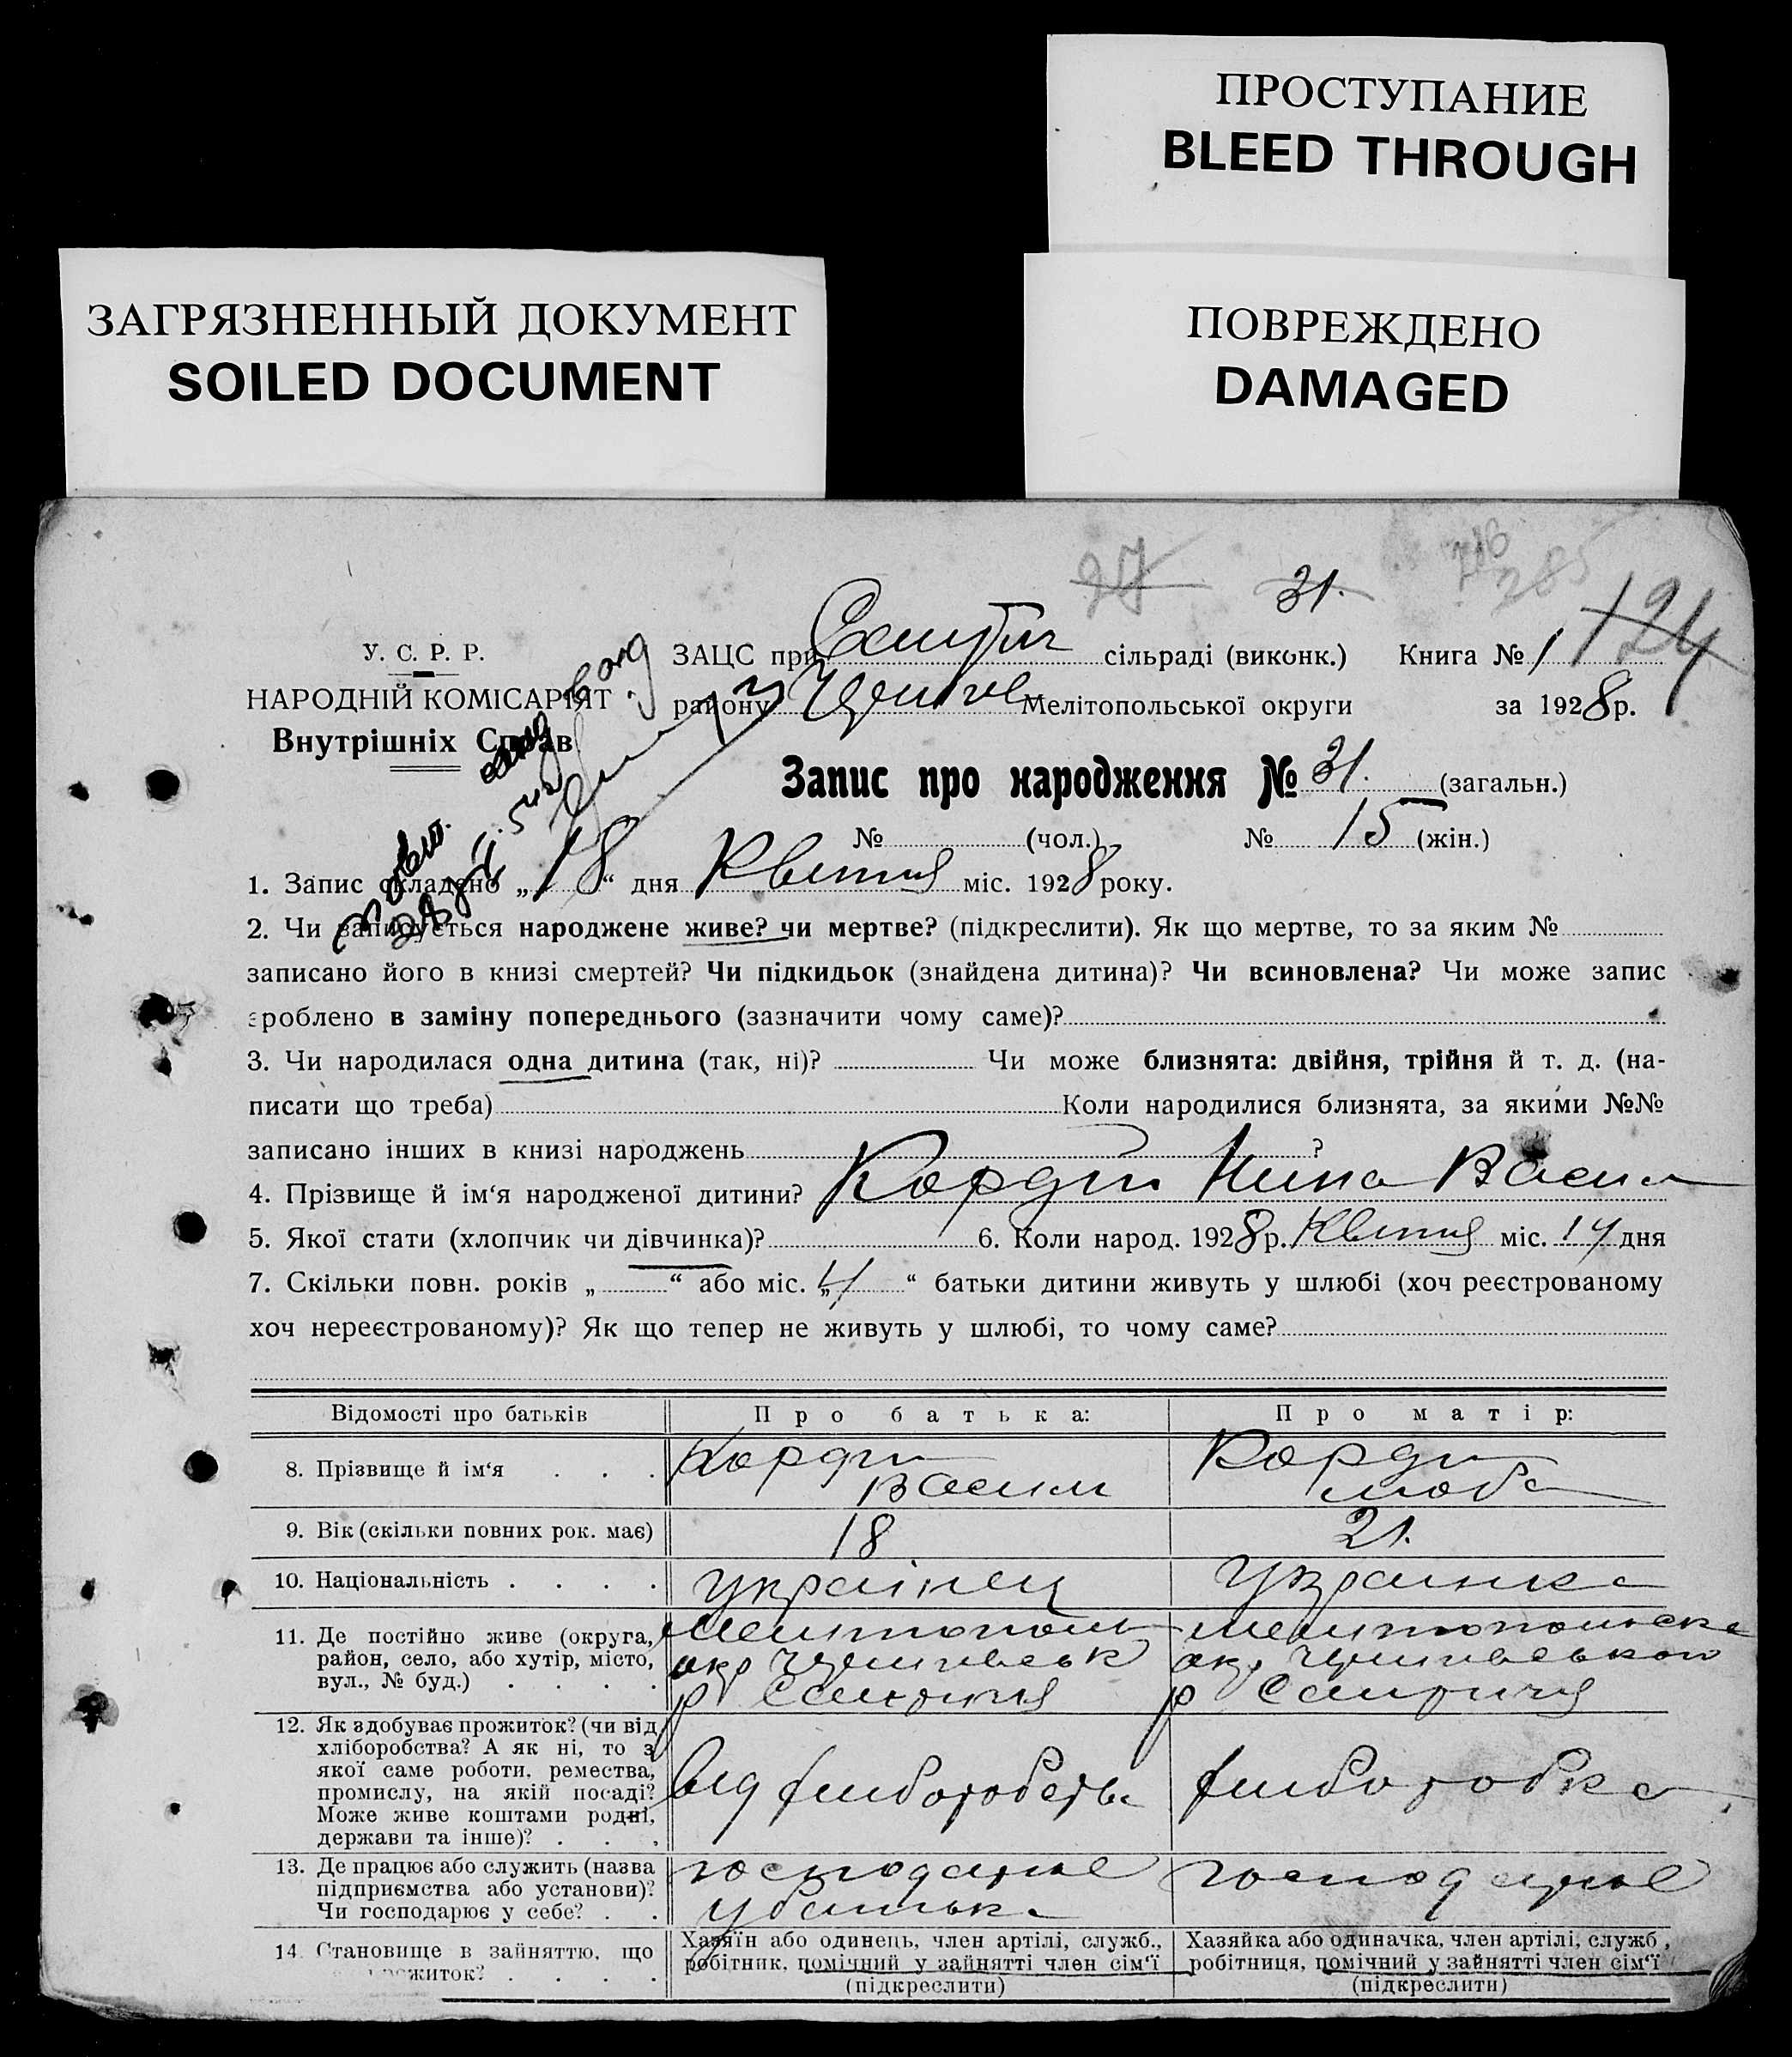 ПРОСТУПАНИЕ
BLEED THROUGH
ЗАГРЯЗНЕННЫЙ ДОКУМЕНТ
SOILED DOCUMENT
ПОВРЕЖДЕНО
DAMAGED
27 31. 285
124
У. С. Р. Р.
НАРОДНІЙ КОМІСАРІЯТ
Внутрішніх Справ
ЗАЦС при сільраді (виконк.) Книга № 1
району Мелітопольської округи за 1928 р.
Запис про народження № 31. (загальн.)
№ (чол.) № 15 (жін.)
1. Запис складено „18“ дня Квітня міс. 1928 року.
2. Чи записується народжене живе? чи мертве? (підкреслити). Як що мертве, то за яким №
записано його в книзі смертей? Чи підкидьок (знайдена дитина)? Чи всиновлена? Чи може запис
зроблено в заміну попереднього (зазначити чому саме)?
3. Чи народилася одна дитина (так, ні)? Чи може близнята: двійня, трійня й т. д. (на-
писати що треба) Коли народилися близнята, за якими №№
записано інших в книзі народжень ?
4. Прізвище й ім‘я народженої дитини? Кордин Нина Васил
5. Якої стати (хлопчик чи дівчинка)? 6. Коли народ. 1928 р. Квітня міс. 14 дня
7. Скільки повн. років „ “ або міс. „4“ батьки дитини живуть у шлюбі (хоч реєстрованому
хоч нереєстрованому)? Як що тепер не живуть у шлюбі, то чому саме?
Відомості про батьків Про батька: Про матір:
8. Прізвище й ім‘я . . . Кордин Васили Кордин Люба
9. Вік (скільки повних рок. має) 18 21.
10. Національність . . . . українец Українка
11. Де постійно живе (округа,
район, село, або хутір, місто,
вул., № буд.) . . . .
Мелитополь
окр
р
Мелитопольска
окр
р
12. Як здобуває прожиток? (чи від
хліборобства? А як ні, то з
якої саме роботи, ремества,
промислу, на якій посаді?
Може живе коштами родні,
держави та інше)? . . .
від хлиборобства хлиборобка
13. Де працює або служить (назва
підприємства або установи)?
Чи господарює у себе? . .
господарює
у батька
господарює
14. Становище в зайняттю, що
прожиток? . . . .
Хазяїн або одинець, член артілі, служб.,
робітник, помічний у зайнятті член сім‘ї
(підкреслити)
Хазяйка або одиначка, член артілі, служб,
робітниця, помічний у зайнятті член сім‘ї
(підкреслити)